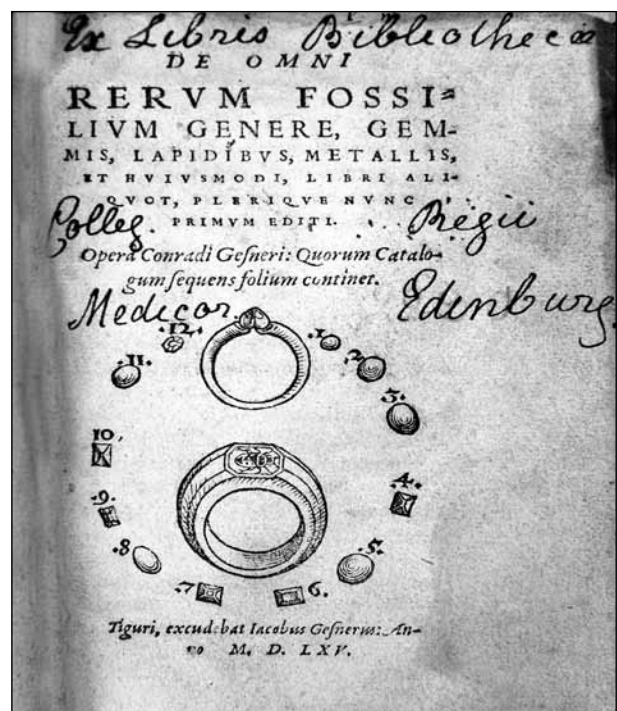 Ex Libris Bibliothecæ
DE OMNI
RERVM FOSSI=
LIVM GENERE, GEM-
MIS, LAPIDIBVS, METALLIS,
ET HVIVSMODI, LIBRI ALI-
QVOT, PLERIQVE NVNC
Colleg. PRIMVM EDITI. Regii
Opera Conradi Geſneri: Quorum Catalo-
gum ſequens folium continet.
Medicor. Edinburg.
.12. .1.
.11. .2.
.3.
10.
.9. .4.
.8 .5.
.7. 6.
Tiguri, excudebat Iacobus Geſnerus: An-
no M. D. LXV.